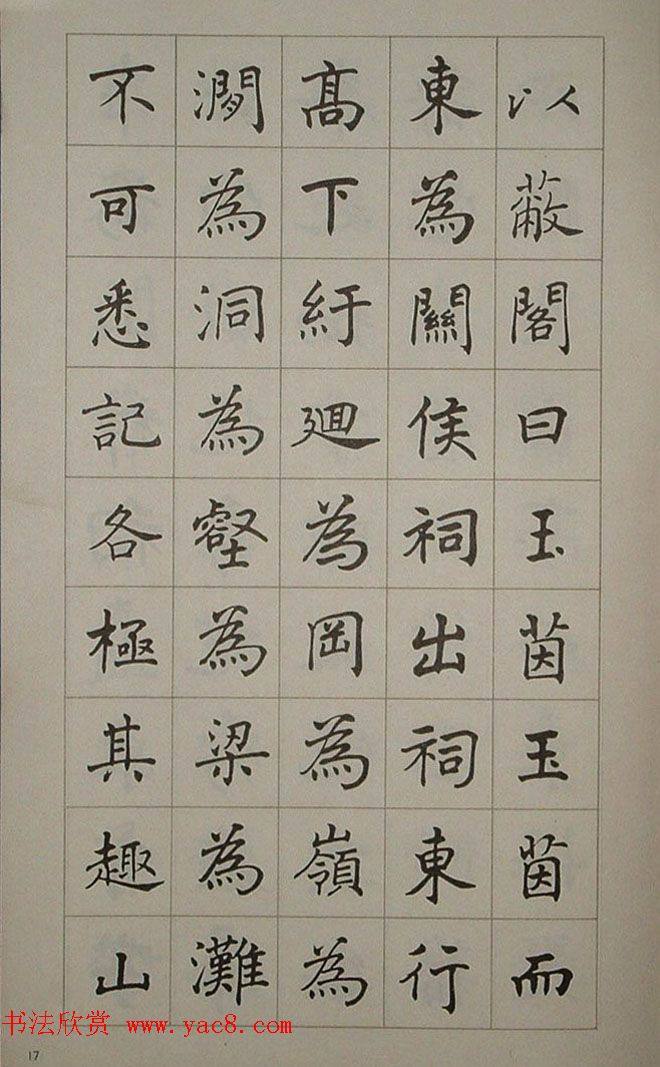 以蔽閣曰玉茵玉茵而
東為關侯祠出祠東行
髙下紆廻為岡為嶺為
澗為洞為壑為梁為灘
不可悉記各極其趣山
书法欣赏 www.yac8.com
17